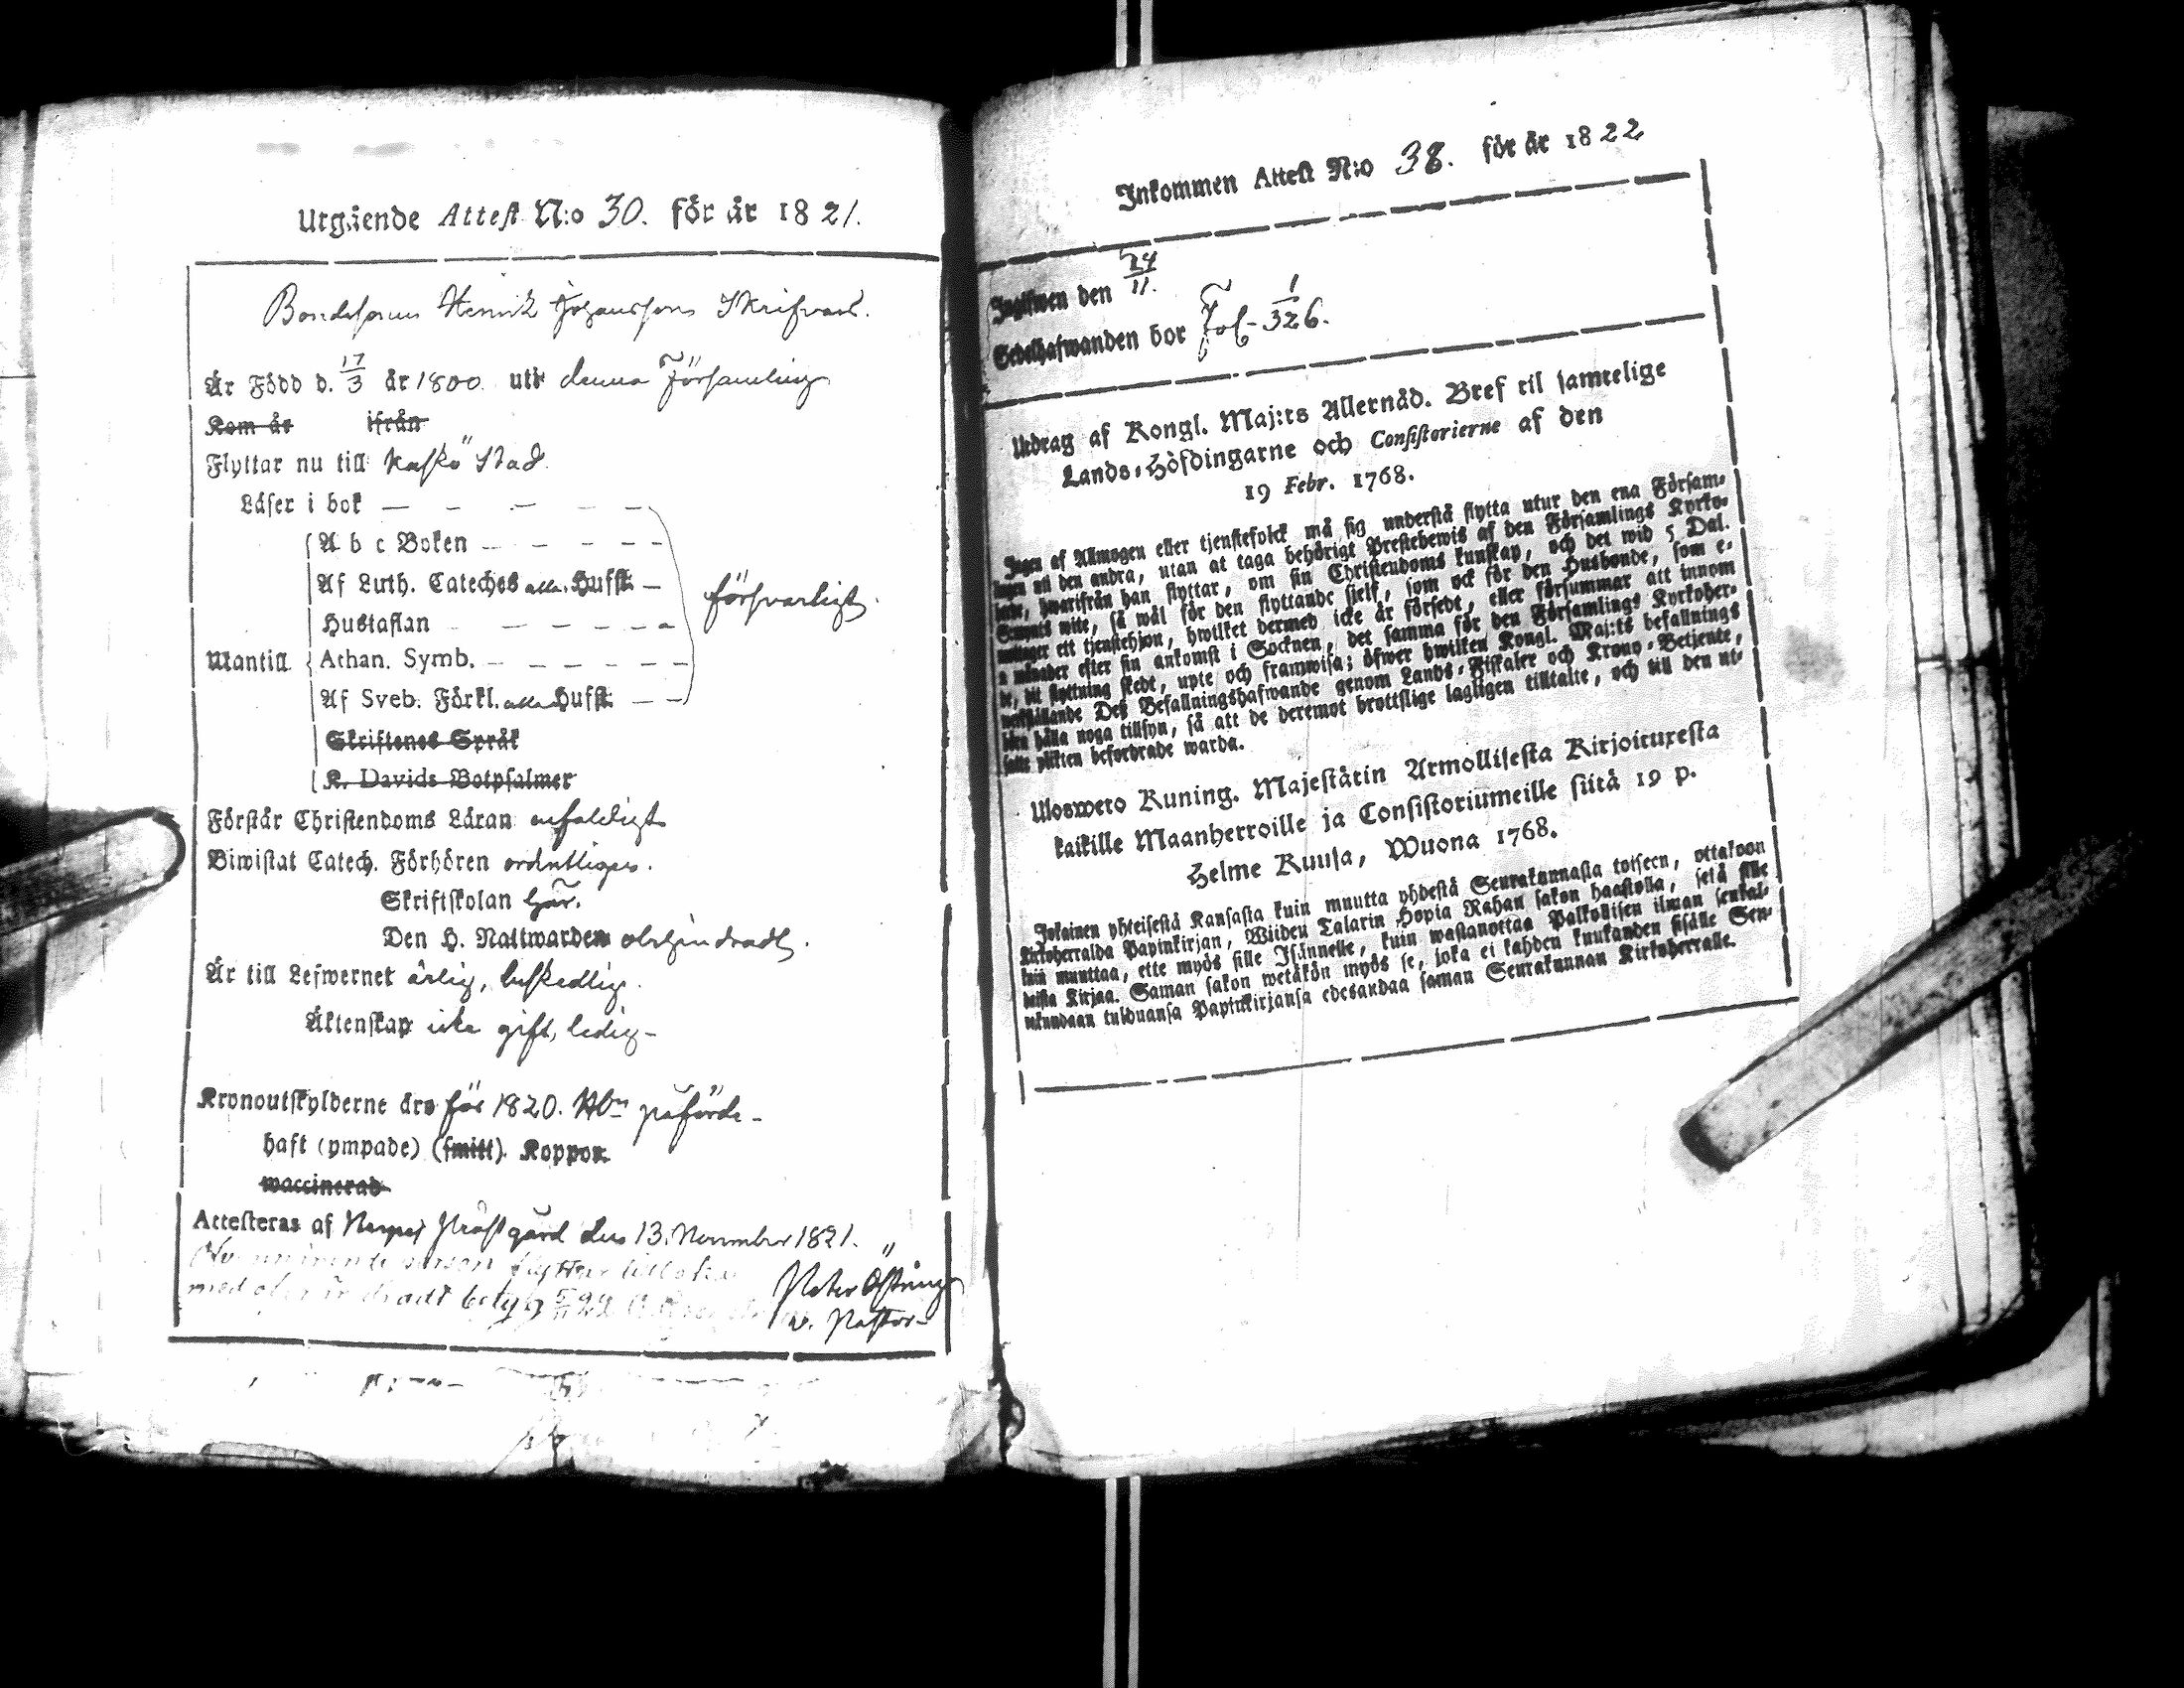 Utgående Attest N:o 30. för år 1821.
Bondesonen Henrik Johansson Skrifvars.
Är Född d. 17/3 år 1800 uti denna Församling
Kom år ifrån
Flyttar nu till Kaskö Stad.
Läser i bok — — — — —
A b c Boken — — — — —
Af Luth. Cateches alla Husst. —
försvarligt.
Hustaflan — — — — —
Mantill Athan. Symb. — — — — —
Af Sveb. Förkl. alla Husst. — —
Skriftenes Språk
K. Davids Botpsalmer
Förstår Christendoms Läran enfaldigt
Biwistat Catech. Förhören ordentligen.
Skriftskolan här.
Den H. Nattwarden obehindradt.
Är till Lefwernet ärlig, beskedlig.
Äktenskap icke gift, ledig —
Kronoutskylderne äro för 1820. påförde —
haft (ympade) (smitt). Koppor.
waccinerad
Attesteras af Nerpes Prästgård den 13. November 1821.
flyttar
med betyg
Peter
v. Pastor —
Inkommen Attest N:o 38. för år 1822
Ingifwen den 24/11.
Sedelhafwanden bor Fol. 1/326.
Utdrag af Kongl. Maj:ts Allernåd. Bref til samtelige
Lands-Höfdingarne och Consistorierne af den
19 Febr. 1768.
Ingen af Allmogen eller tjenstefolck må sig understå flytta utur den ena Försam-
lingen til den andra, utan at taga behörigt Prestebewis af den Församlings Kyrko-
herde, hwarifrån han flyttar, om sin Christendoms kunskap, och det wid 5 Dal.
S:mynts wite, så wäl för den flyttande sjelf, som ock för den Husbonde, som e-
mottager ett tjenstehjon, hwilket dermed icke är försedt, eller försummar att innom
2 månader efter sin ankomst i Socknen, det samma för den Församlings Kyrkoher-
de, dit flyttning skedt, upte och framwisa; öfwer hwilken Kongl. Maj:ts befallnings
werkställande Deß Befallningshafwande genom Lands-Fiskaler och Krono-Betjente,
böra hålla noga tillsyn, så att de deremot brottslige lagligen tilltalte, och till den ut-
satte plikten befordrade warda.
Ulosweto Kuning. Majestätin Armollisesta Kirjoituxesta
kaikille Maanherroille ja Consistoriumeille siitä 19 p.
Helme Kuusa, Wuona 1768.
Jokainen yhteisestä Kansasta kuin muutta yhdestä Seurakunnasta toiseen, ottakoon
Kirkoherralda Papinkirjan, Wiiden Talarin Hopia Rahan sakon haastolla, sekä sille
kuin muuttaa, ette myös sille Isännelle, kuin wastanottaa Palkollisen ilman senkal-
daista Kirjaa. Saman sakon wetäkön myös se, joka ei kahden kuukauden sisälle Seu-
rakundaan tulduansa Papinkirjansa edesandaa saman Seurakunnan Kirkoherralle.